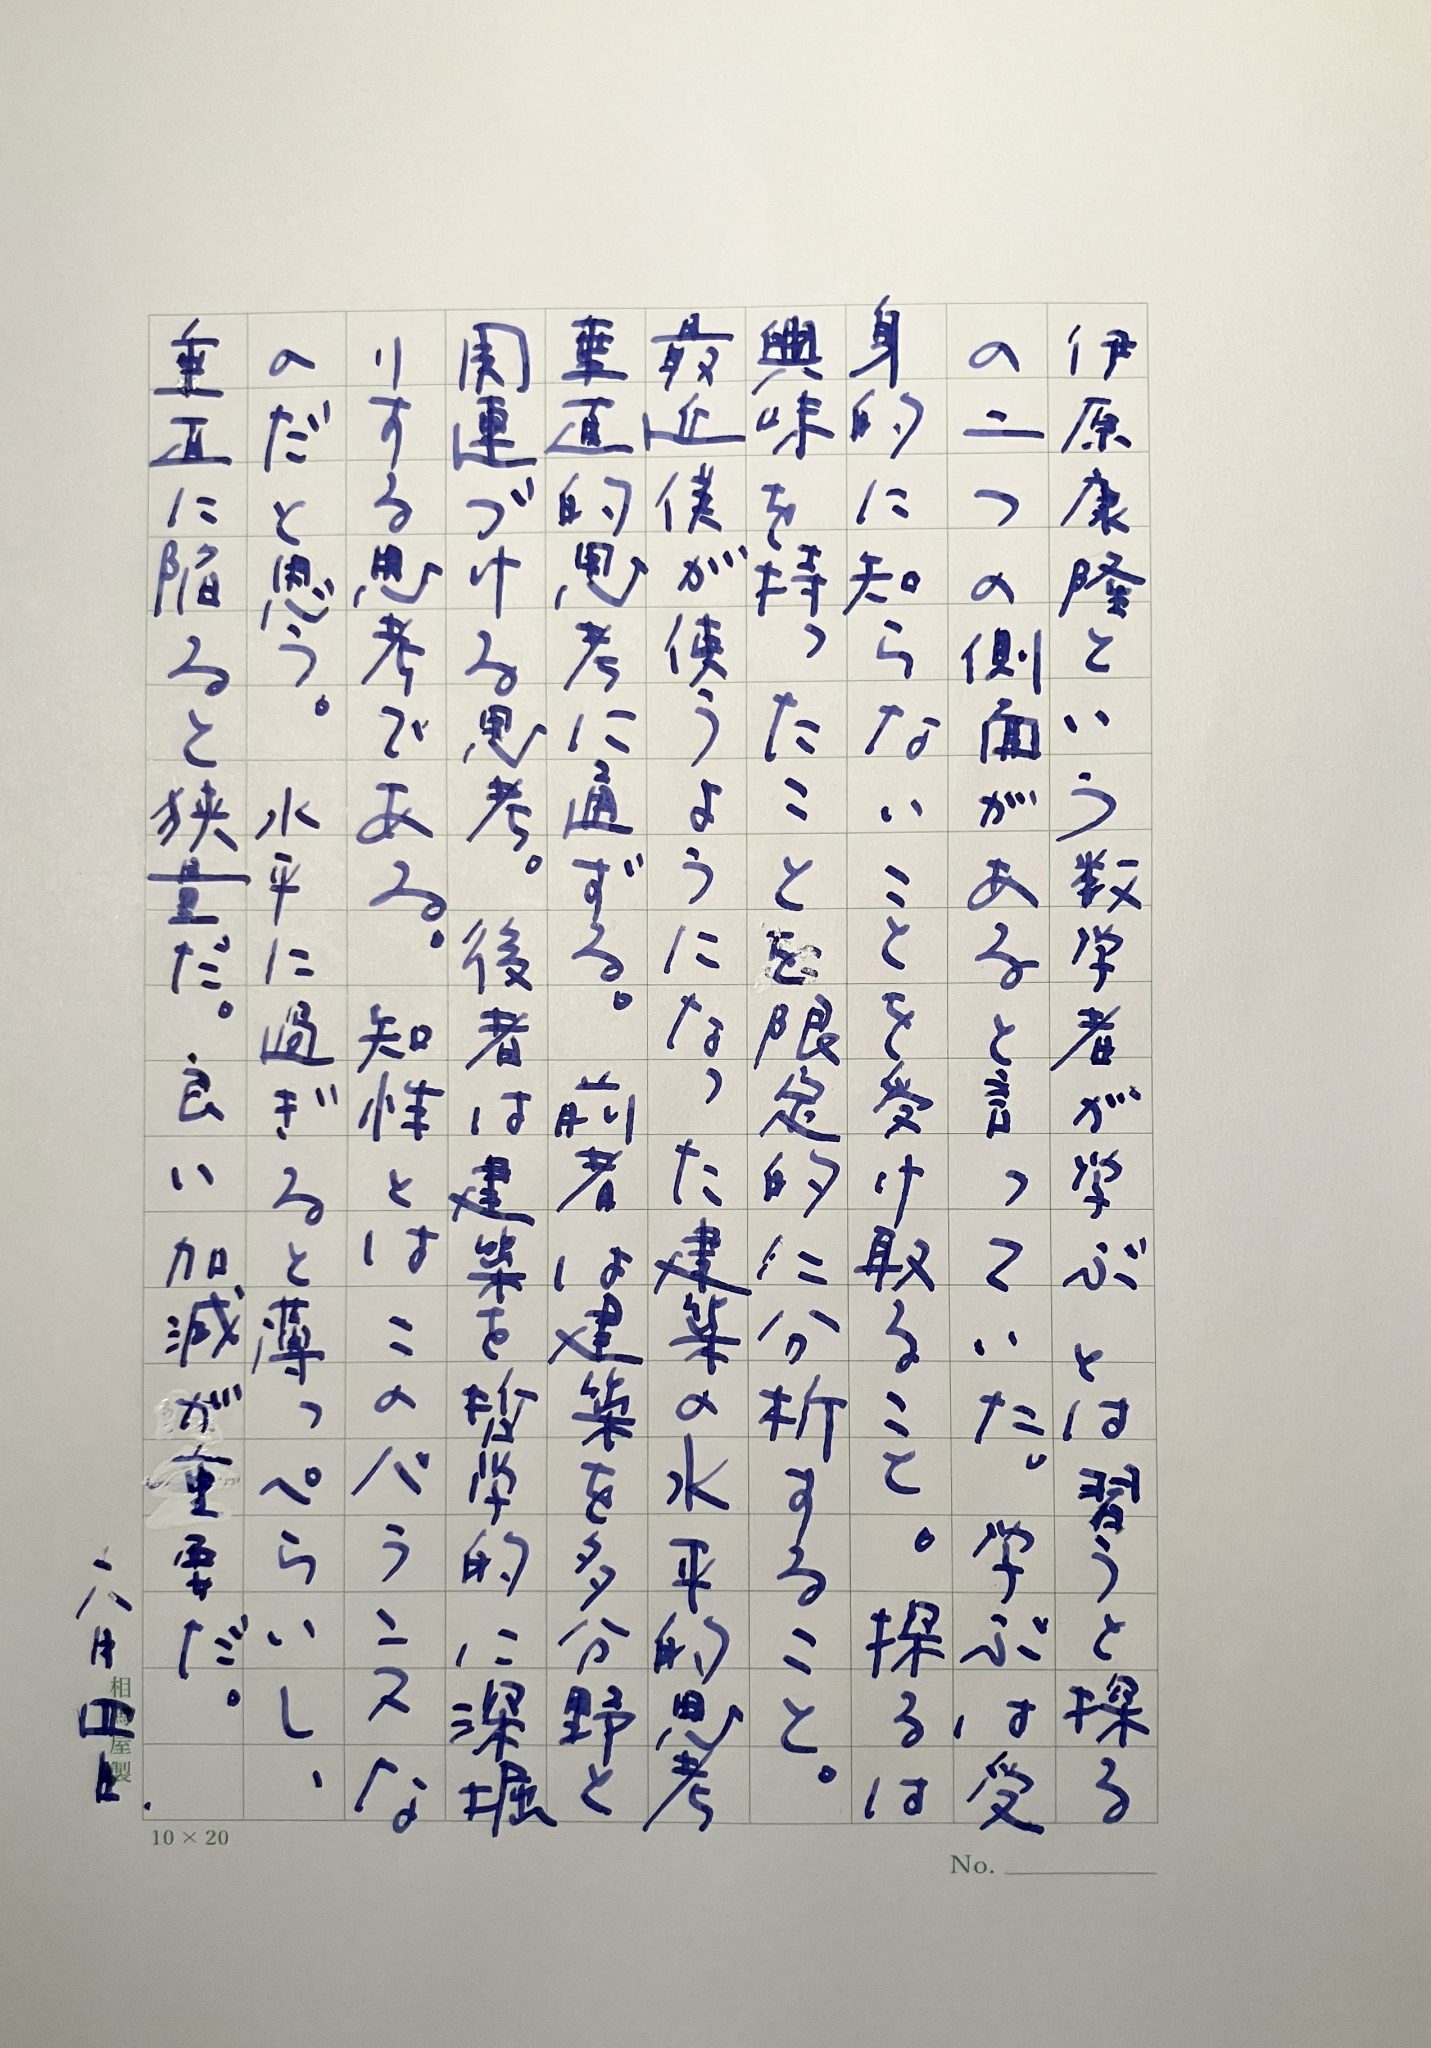 伊原康隆という数学者が学ぶとは習うと探る
の二つの側面があると言っていた。学ぶは受
身的に知らないことを受け取ること。探るは
興味を持ったことを限定的に分析すること。
最近僕が使うようになった建築の水平的思考
垂直的思考に通ずる。前者は建築を多分野と
関連づける思考。後者は建築を哲学的に深堀
りする思考である。知性とはこのバランスな
のだと思う。水平に過ぎると薄っぺらいし、
垂直に陥ると狭量だ。良い加減が重要だ。
八月四日
相馬屋製
10×20
No.